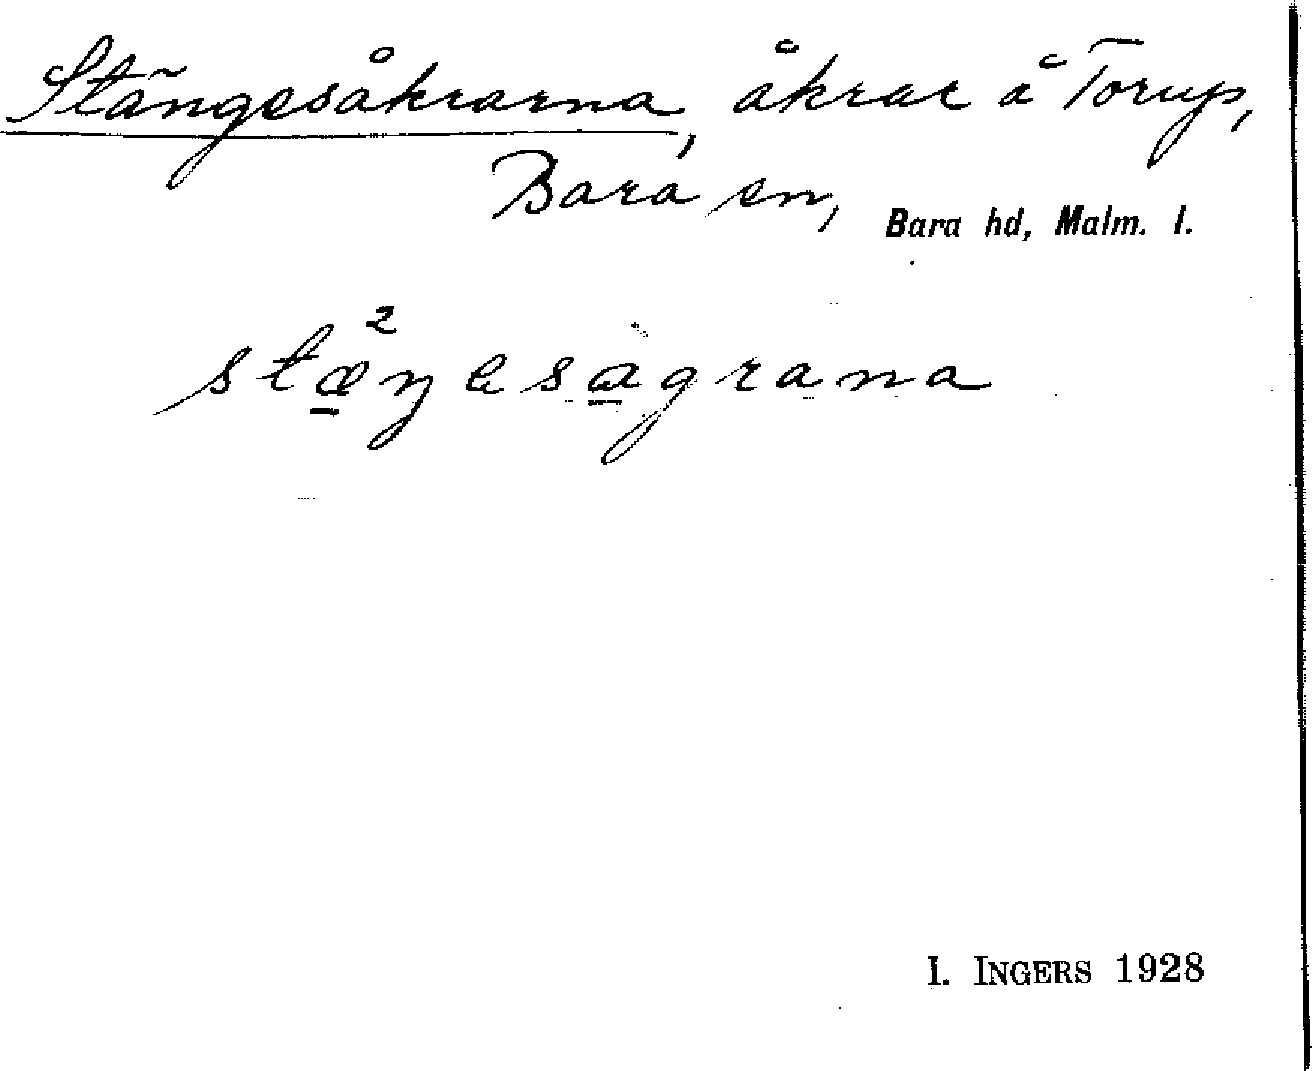 Stängesåkrarna, åkrar å Torup,
Bara sn, Bara hd, Malm. l.
stæ²ŋesàgrana
I. INGERS 1928